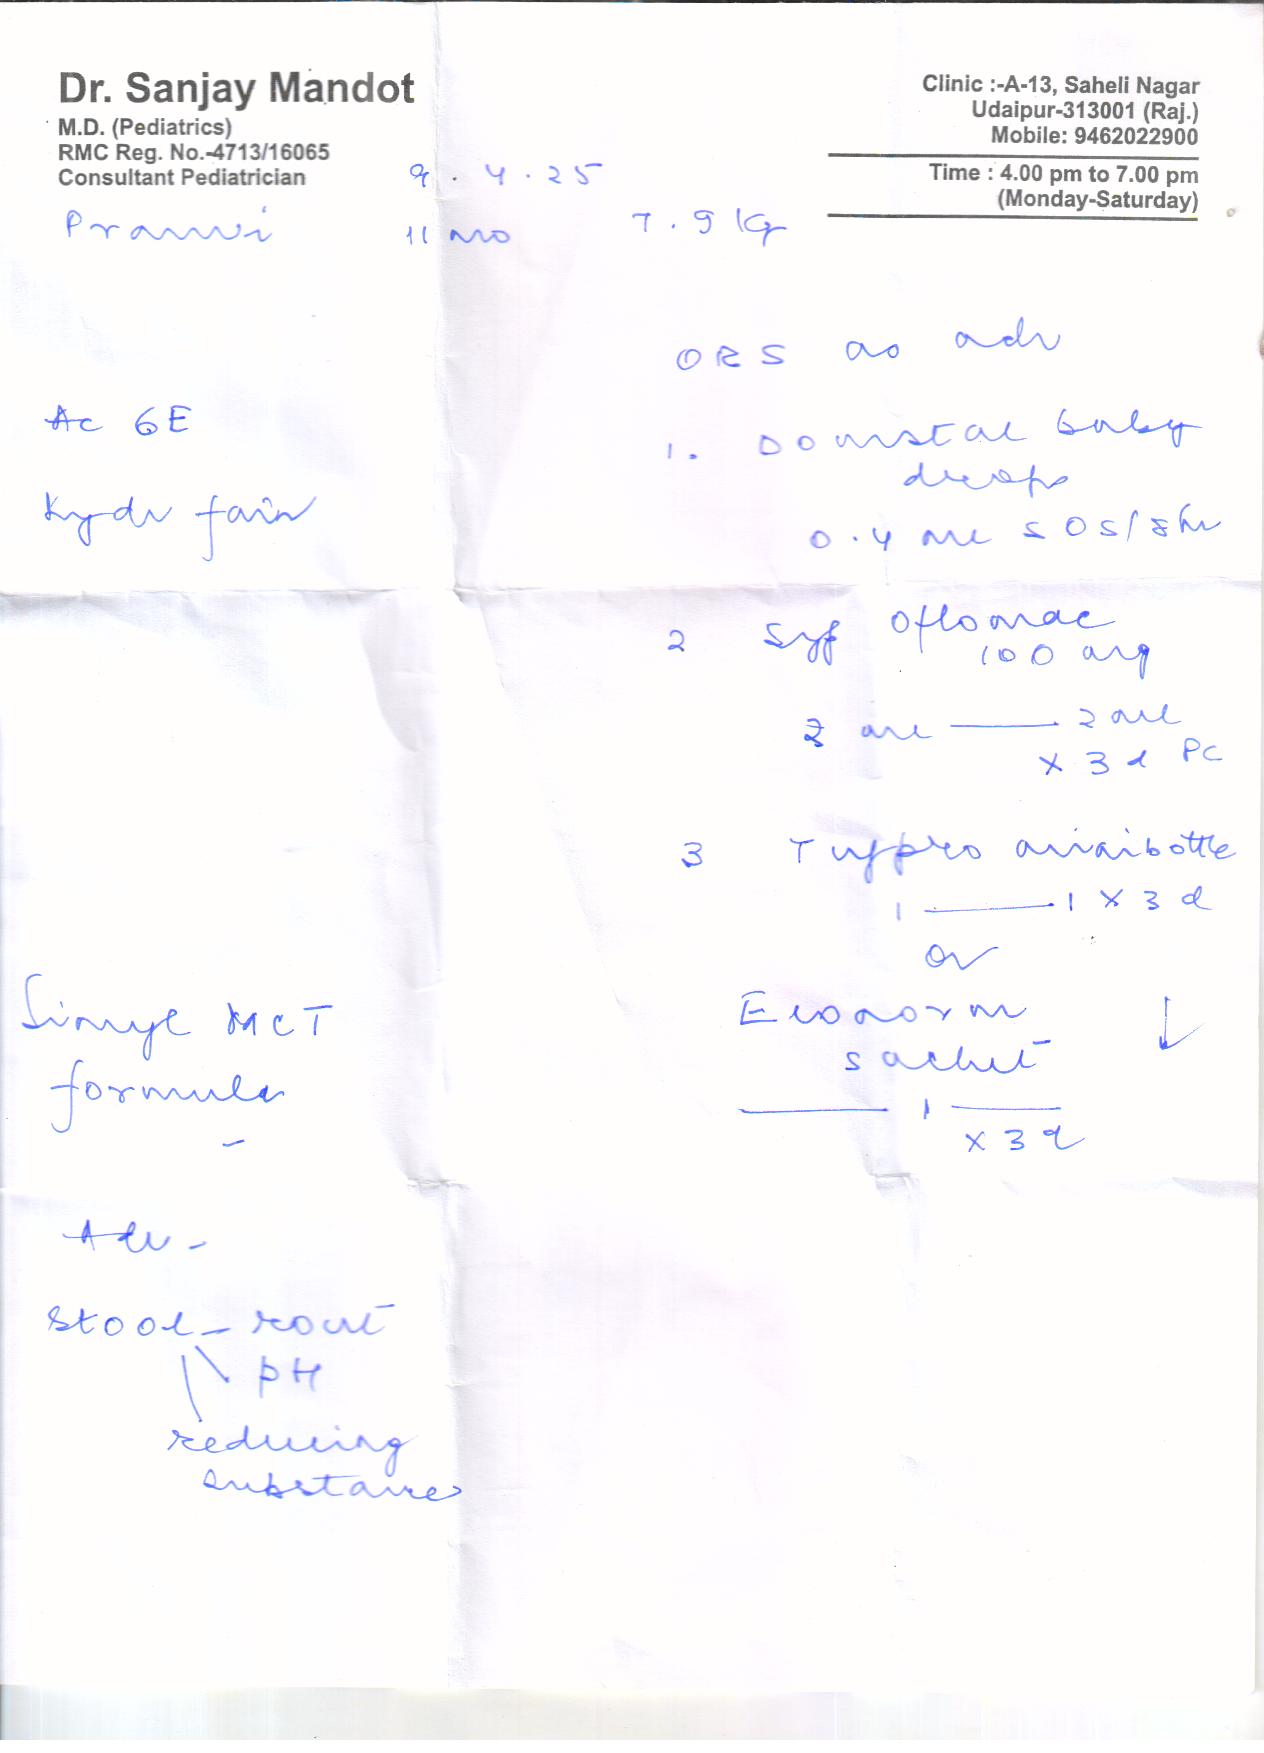 Dr. Sanjay Mandot
M.D. (Pediatrics)
RMC Reg. No.-4713/16065
Consultant Pediatrician
Clinic :-A-13, Saheli Nagar
Udaipur-313001 (Raj.)
Mobile: 9462022900
Time : 4.00 pm to 7.00 pm
(Monday-Saturday)
9.4.25
11 mo 7.9 Kg
ORS as adv
Ac GE
Hydr fair
1. Domstal baby
drops
0.4 ml SOS/8hr
2 Syp Oflomac
100 mg
2 ml — 2 ml
x 3 d PC
3 Tufpro minibottle
1 — 1 x 3 d
or
Econorm
sachet
— 1 —
x 3 d
Simyl MCT
formula
Adv -
Stool - rout
pH
reducing
substances